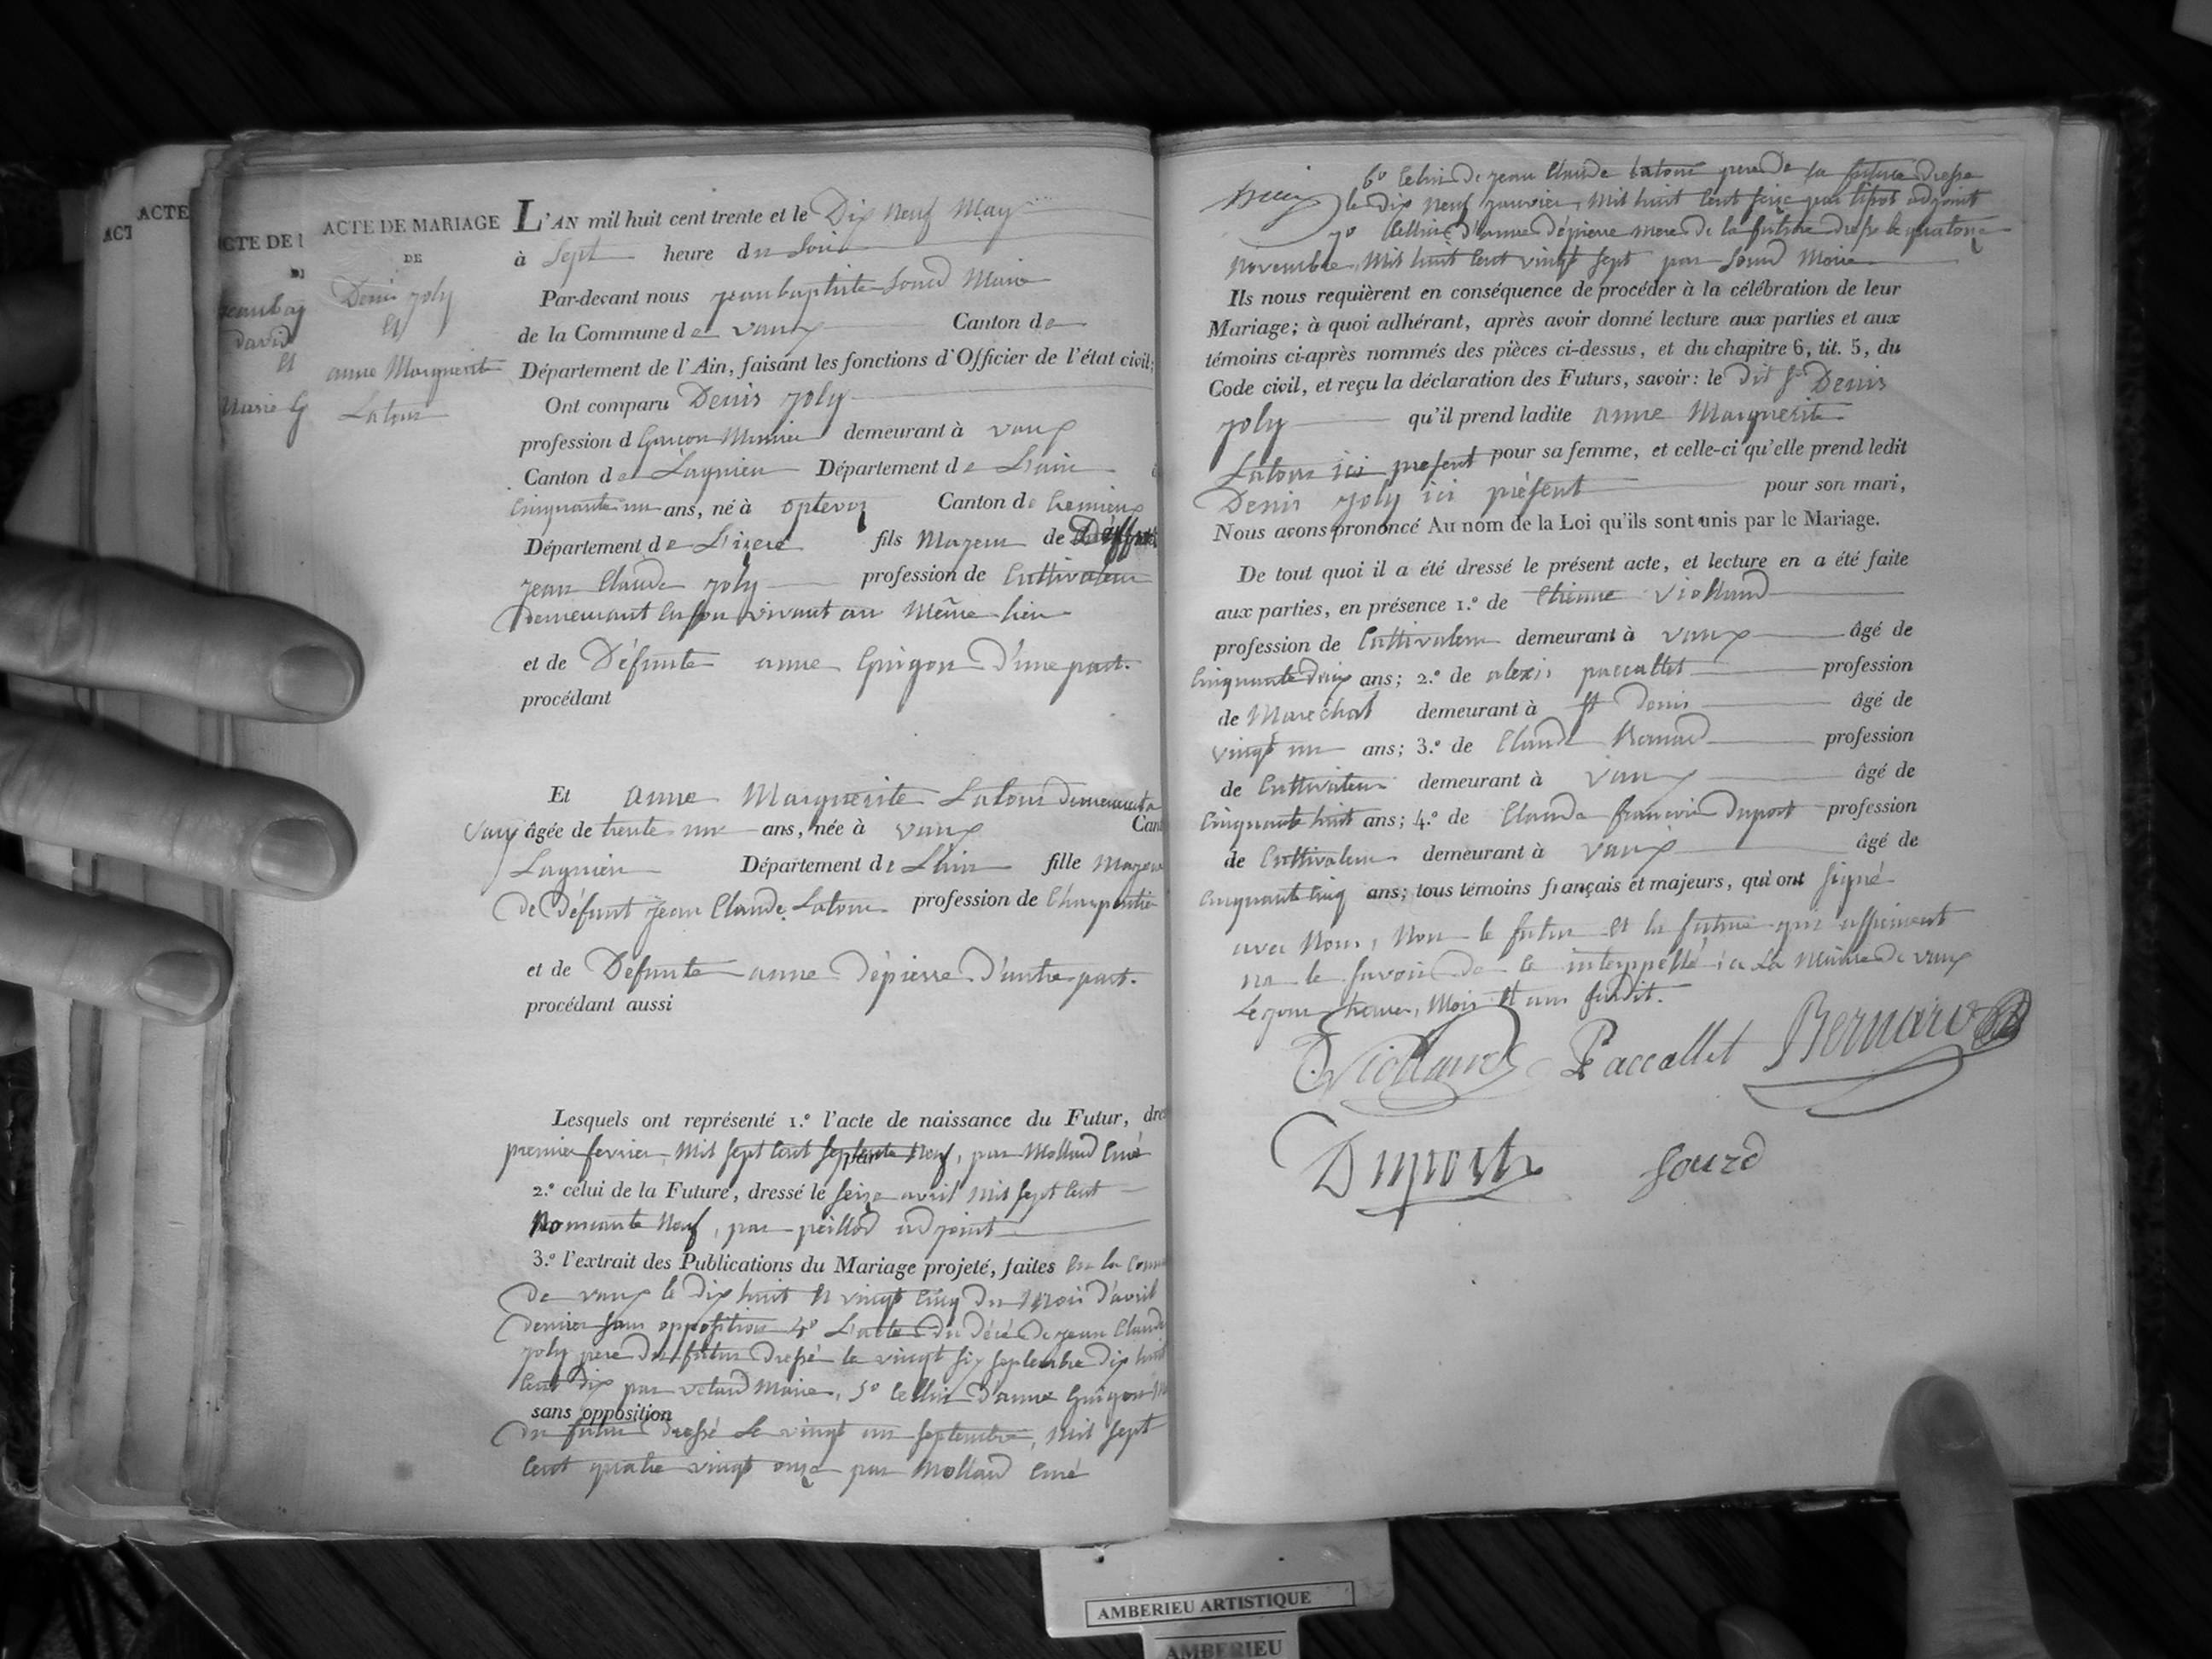 ACTE
ACT
ACTE DE
Jeanbap
David
et
Marie G
ACTE DE MARIAGE
DE
Denis joly
et
anne Marguerite
Latour
L'AN mil huit cent trente et le Dix Neuf May
à Sept heure du Soir
Par-devant nous jeanbaptiste Sourd Maire
de la Commune de vaux Canton de
Département de l'Ain, faisant les fonctions d'Officier de l'état civil;
Ont comparu Denis joly
profession d garçon Munier demeurant à vaux
Canton de Lagnieu Département de L'ain
Cinquante un ans, né à optevoz Canton de Cremieux
Département de L'izere fils Majeur de Deffunt
jean Claude joly profession de Cultivateur
Demeurant en son vivant au Même lieu
et de Défunte anne Guigon D'une part.
procédant
Et anne Marguerite Latour Demeurant a
vaux âgée de trente un ans, née à vaux Cant
Lagnieu Département de L'ain fille Majeure
de Défunt jean Claude Latour profession de Charpentier
et de Défunte anne Dépierre D'autre part.
procédant aussi
Lesquels ont représenté 1.º l'acte de naissance du Futur, dre
premier fevrier, Mil sept Cent septente Neuf, par Mollard Curé
2.º celui de la Future, dressé le seize avril Mil sept Cent
Nonante Neuf, par peillod adjoint
3.º l'extrait des Publications du Mariage projeté, faites En la Comm
De vaux le dix huit et vingt Cinq du Mois D'avril
Dernier sans opposition 4º L'acte du Décé De jean Claude
joly pere du futur Dressé le vingt six septembre Dix huit
Cent Dix par vetard Maire, 5º Celluy D'anne Guigon
sans opposition
du futur Dressé Le vingt un septembre, Mil sept
Cent quatre vingt onze par Mollard Curé
6º Celui De jean Claude Latour pere De la future Dressé
le Dix Neuf janvier, Mil huit Cent seize par tipot adjoint
7º Celluy D'anne Dépierre mere De la future Dressé le quatorze
Novembre, Mil huit Cent vingt sept par Sourd Maire
Ils nous requièrent en conséquence de procéder à la célébration de leur
Mariage; à quoi adhérant, après avoir donné lecture aux parties et aux
témoins ci-après nommés des pièces ci-dessus, et du chapitre 6, tit. 5, du
Code civil, et reçu la déclaration des Futurs, savoir: le dit Sr Denis
joly qu'il prend ladite anne Marguerite
Latour ici present pour sa femme, et celle-ci qu'elle prend ledit
Denis joly ici présent pour son mari,
Nous avons prononcé Au nom de la Loi qu'ils sont unis par le Mariage.
De tout quoi il a été dressé le présent acte, et lecture en a été faite
aux parties, en présence 1.º de Etienne Violland
profession de Cultivateur demeurant à vaux âgé de
Cinquante Deux ans; 2.º de alexis paccallet profession
de Marechal demeurant à St Denis âgé de
vingt un ans; 3.º de Claude Bernard profession
de Cultivateur demeurant à vaux âgé de
Cinquante huit ans; 4.º de Claude francois Duport profession
de Cultivateur demeurant à vaux âgé de
Cinquante Cinq ans; tous témoins français et majeurs, qui ont signé
avec Nous, Non le futur et la future qui affirment
ne le savoir De ce interppellé; a La Mairie De vaux
Le jour, heure, Mois et an susdit.
E Violland Paccallet Bernard
Duport Sourd
AMBERIEU ARTISTIQUE
AMBERIEU